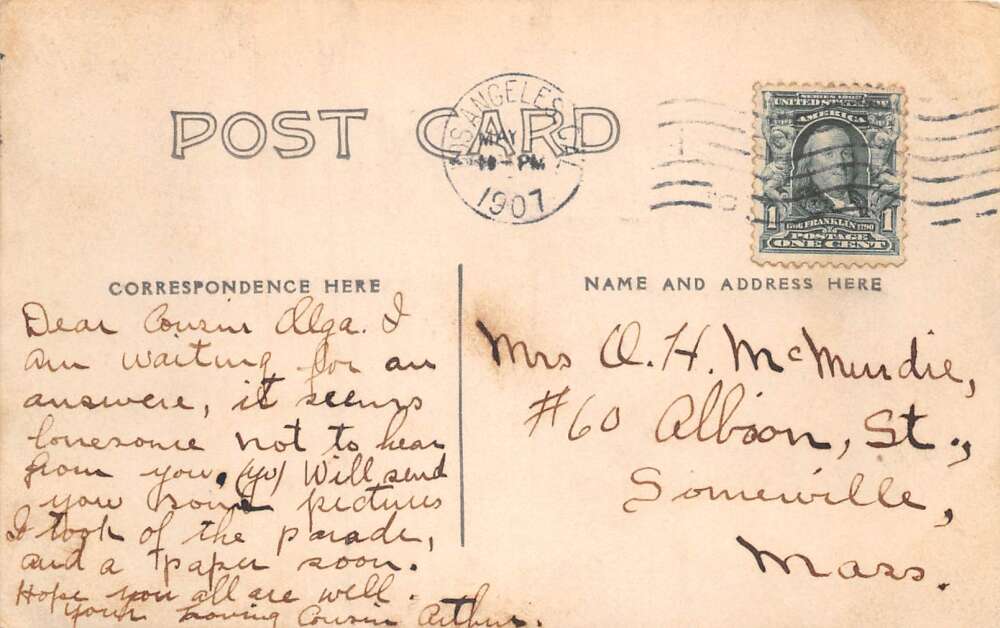 POST CARD
LOS ANGELES, CAL.
MAY
11 - PM
1907
SERIES 1902
UNITED STATES OF
AMERICA
1 1706 FRANKLIN 1790 1
POSTAGE
ONE CENT
CORRESPONDENCE HERE
Dear Cousin Olga. I
am waiting for an
answere, it seems
lonesome not to hear
from you. Will send
you some pictures
I took of the parade,
and a paper soon.
Hope you all are well.
Your Loving Cousin Arthur.
NAME AND ADDRESS HERE
Mrs O. H. McMurdie,
#60 Albion, St.,
Somerville,
Mass.